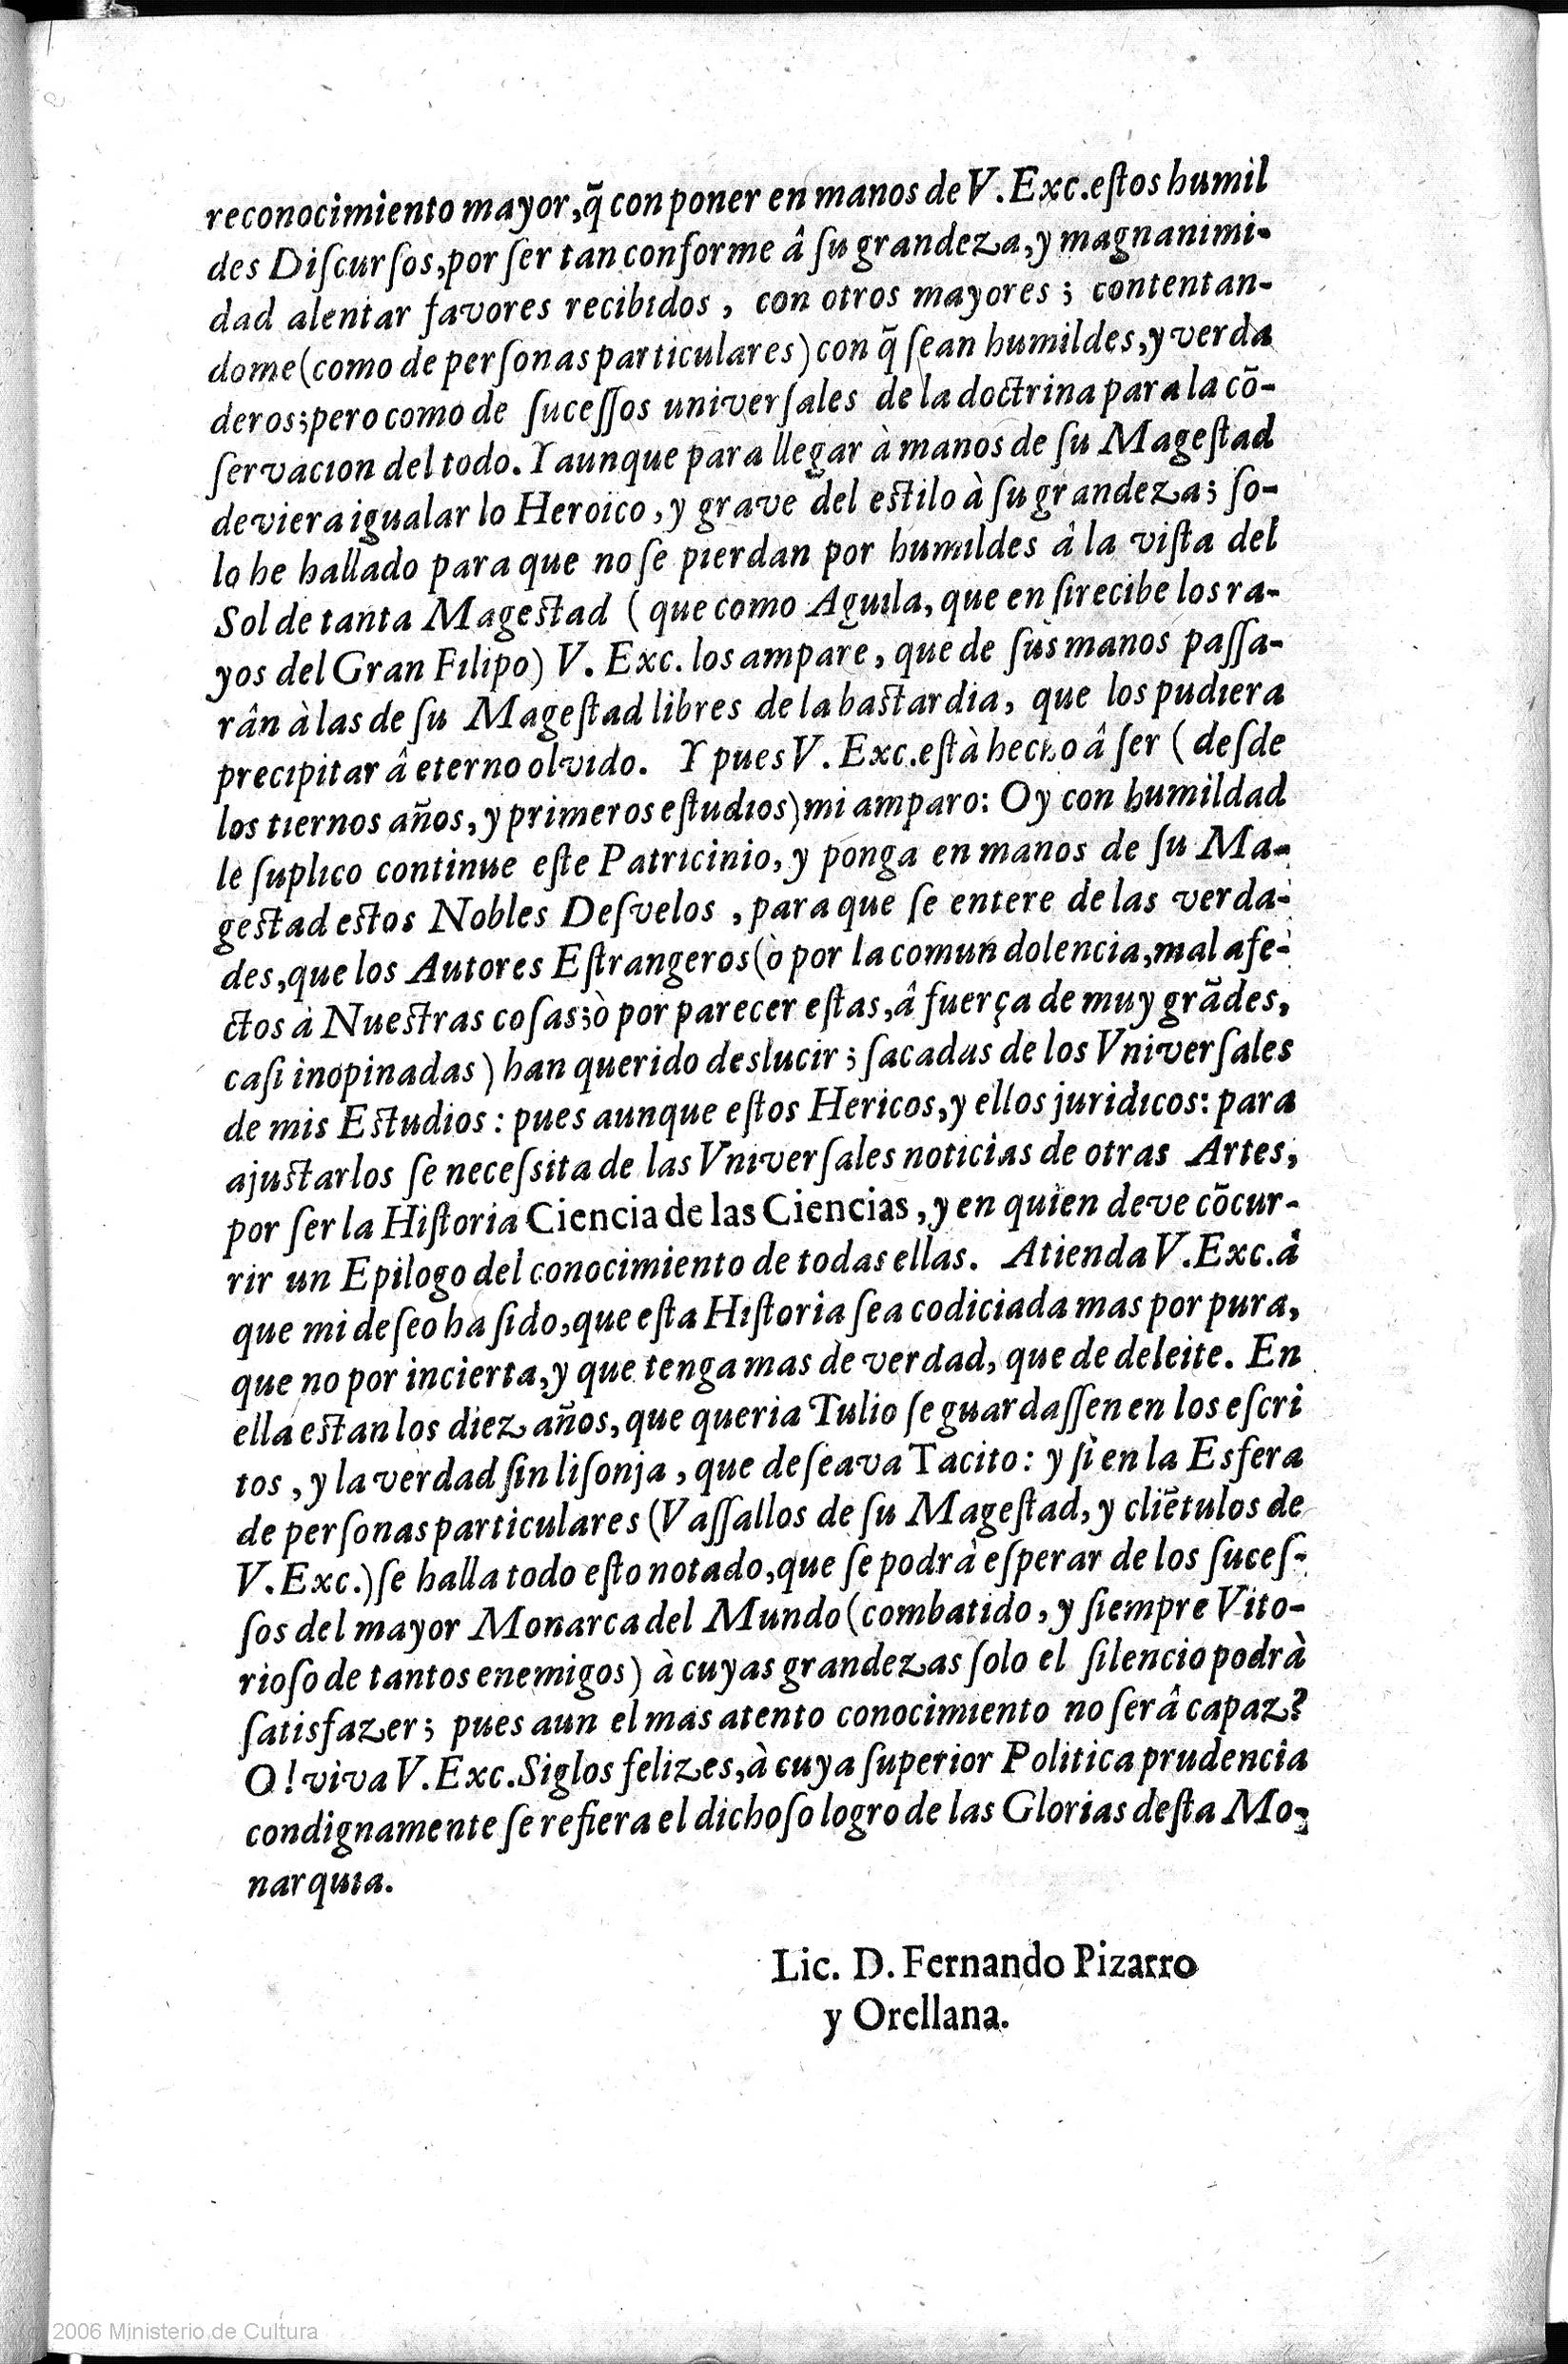 reconocimiento mayor, q̃ con poner en manos de V. Exc. estos humil
des Discursos, por ser tan conforme â su grandeza, y magnanimi-
dad alentar favores recibidos, con otros mayores; contentan-
dome (como de personas particulares) con q̃ sean humildes, y verda
deros; pero como de sucessos universales de la doctrina para la cõ-
servacion del todo. Y aunque para llegar à manos de su Magestad
deviera igualar lo Heroico, y grave del estilo à su grandeza; so-
lo he hallado para que no se pierdan por humildes â la vista del
Sol de tanta Magestad (que como Aguila, que en si recibe los ra-
yos del Gran Filipo) V. Exc. los ampare, que de sus manos passa-
rân à las de su Magestad libres de la bastardia, que los pudiera
precipitar â eterno olvido. Y pues V. Exc. està hecho â ser (desde
los tiernos años, y primeros estudios) mi amparo: Oy con humildad
le suplico continue este Patricinio, y ponga en manos de su Ma-
gestad estos Nobles Desvelos, para que se entere de las verda-
des, que los Autores Estrangeros (ò por la comun dolencia, mal afe-
ctos à Nuestras cosas; ò por parecer estas, â fuerça de muy grãdes,
casi inopinadas) han querido deslucir; sacadas de los Vniversales
de mis Estudios: pues aunque estos Hericos, y ellos juridicos: para
ajustarlos se necessita de las Vniversales noticias de otras Artes,
por ser la Historia Ciencia de las Ciencias, y en quien deve cõcur-
rir un Epilogo del conocimiento de todas ellas. Atienda V. Exc. â
que mi deseo ha sido, que esta Historia sea codiciada mas por pura,
que no por incierta, y que tenga mas de verdad, que de deleite. En
ella estan los diez años, que queria Tulio se guardassen en los escri
tos, y la verdad sin lisonja, que deseava Tacito: y si en la Esfera
de personas particulares (Vassallos de su Magestad, y cliẽtulos de
V. Exc.) se halla todo esto notado, que se podrà esperar de los suces-
sos del mayor Monarca del Mundo (combatido, y siempre Vito-
rioso de tantos enemigos) à cuyas grandezas solo el silencio podrà
satisfazer; pues aun el mas atento conocimiento no serâ capaz?
O! viva V. Exc. Siglos felizes, à cuya superior Politica prudencia
condignamente se refiera el dichoso logro de las Glorias desta Mo-
narquia.
Lic. D. Fernando Pizarro
y Orellana.
2006 Ministerio de Cultura